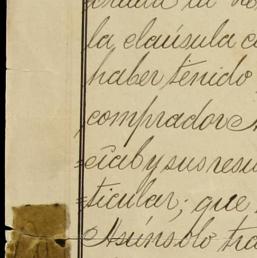 la cláusula c
haber tenido
comprador
cial y sus resu
ticular; que
Asúnsolo tra